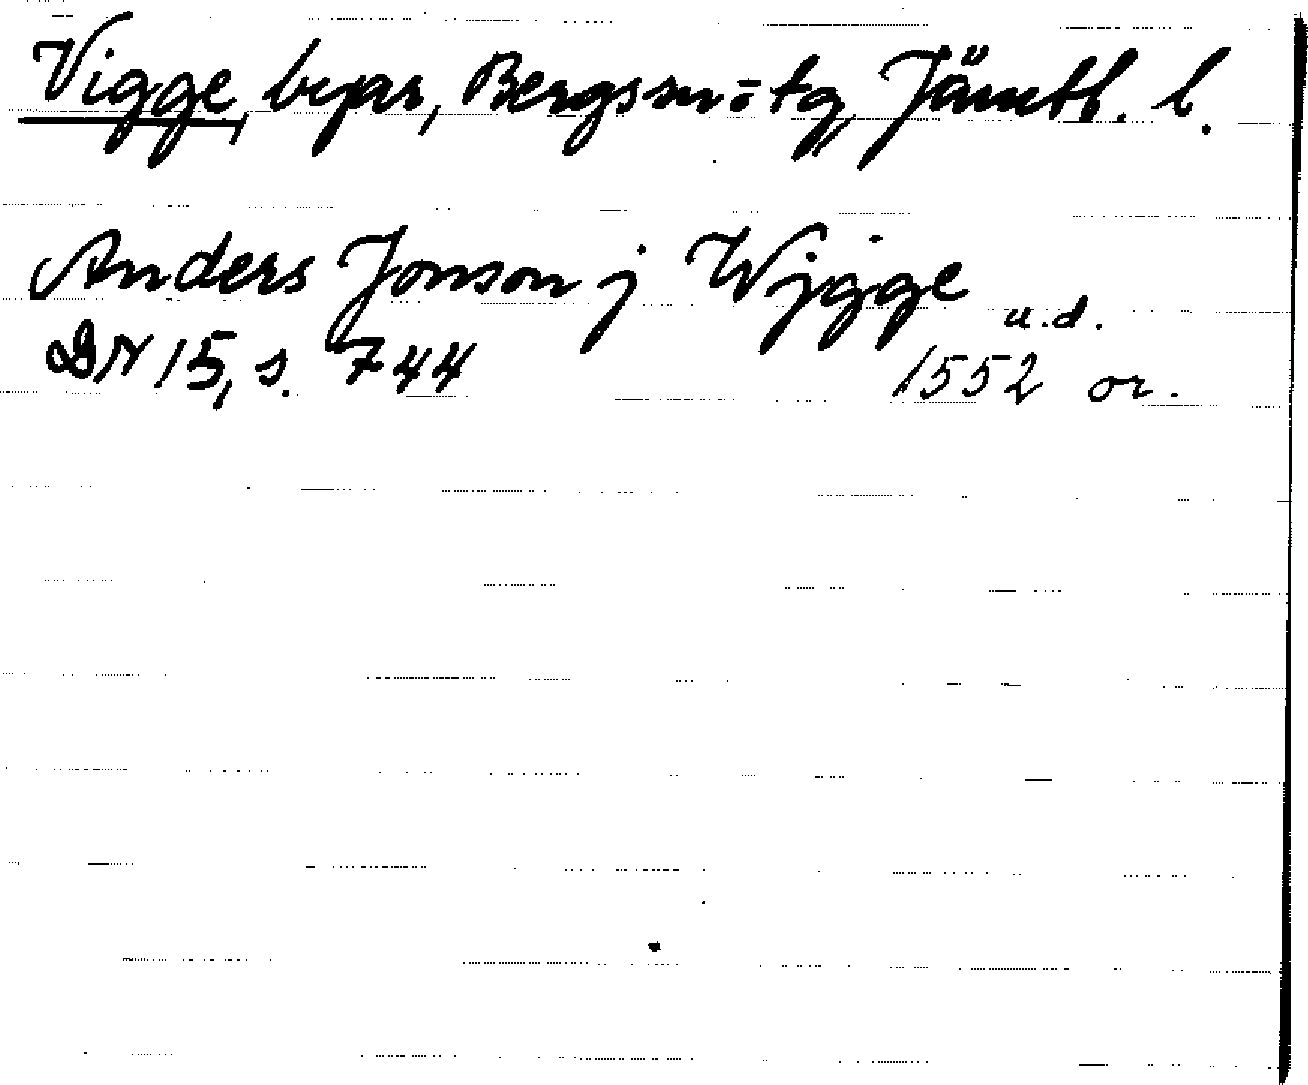 Vigge, byar, Bergs sn o tg, Jämtl. l.
Anders Jonson j Wjgge
u.d.
DN 15, s. 744 1552 or.